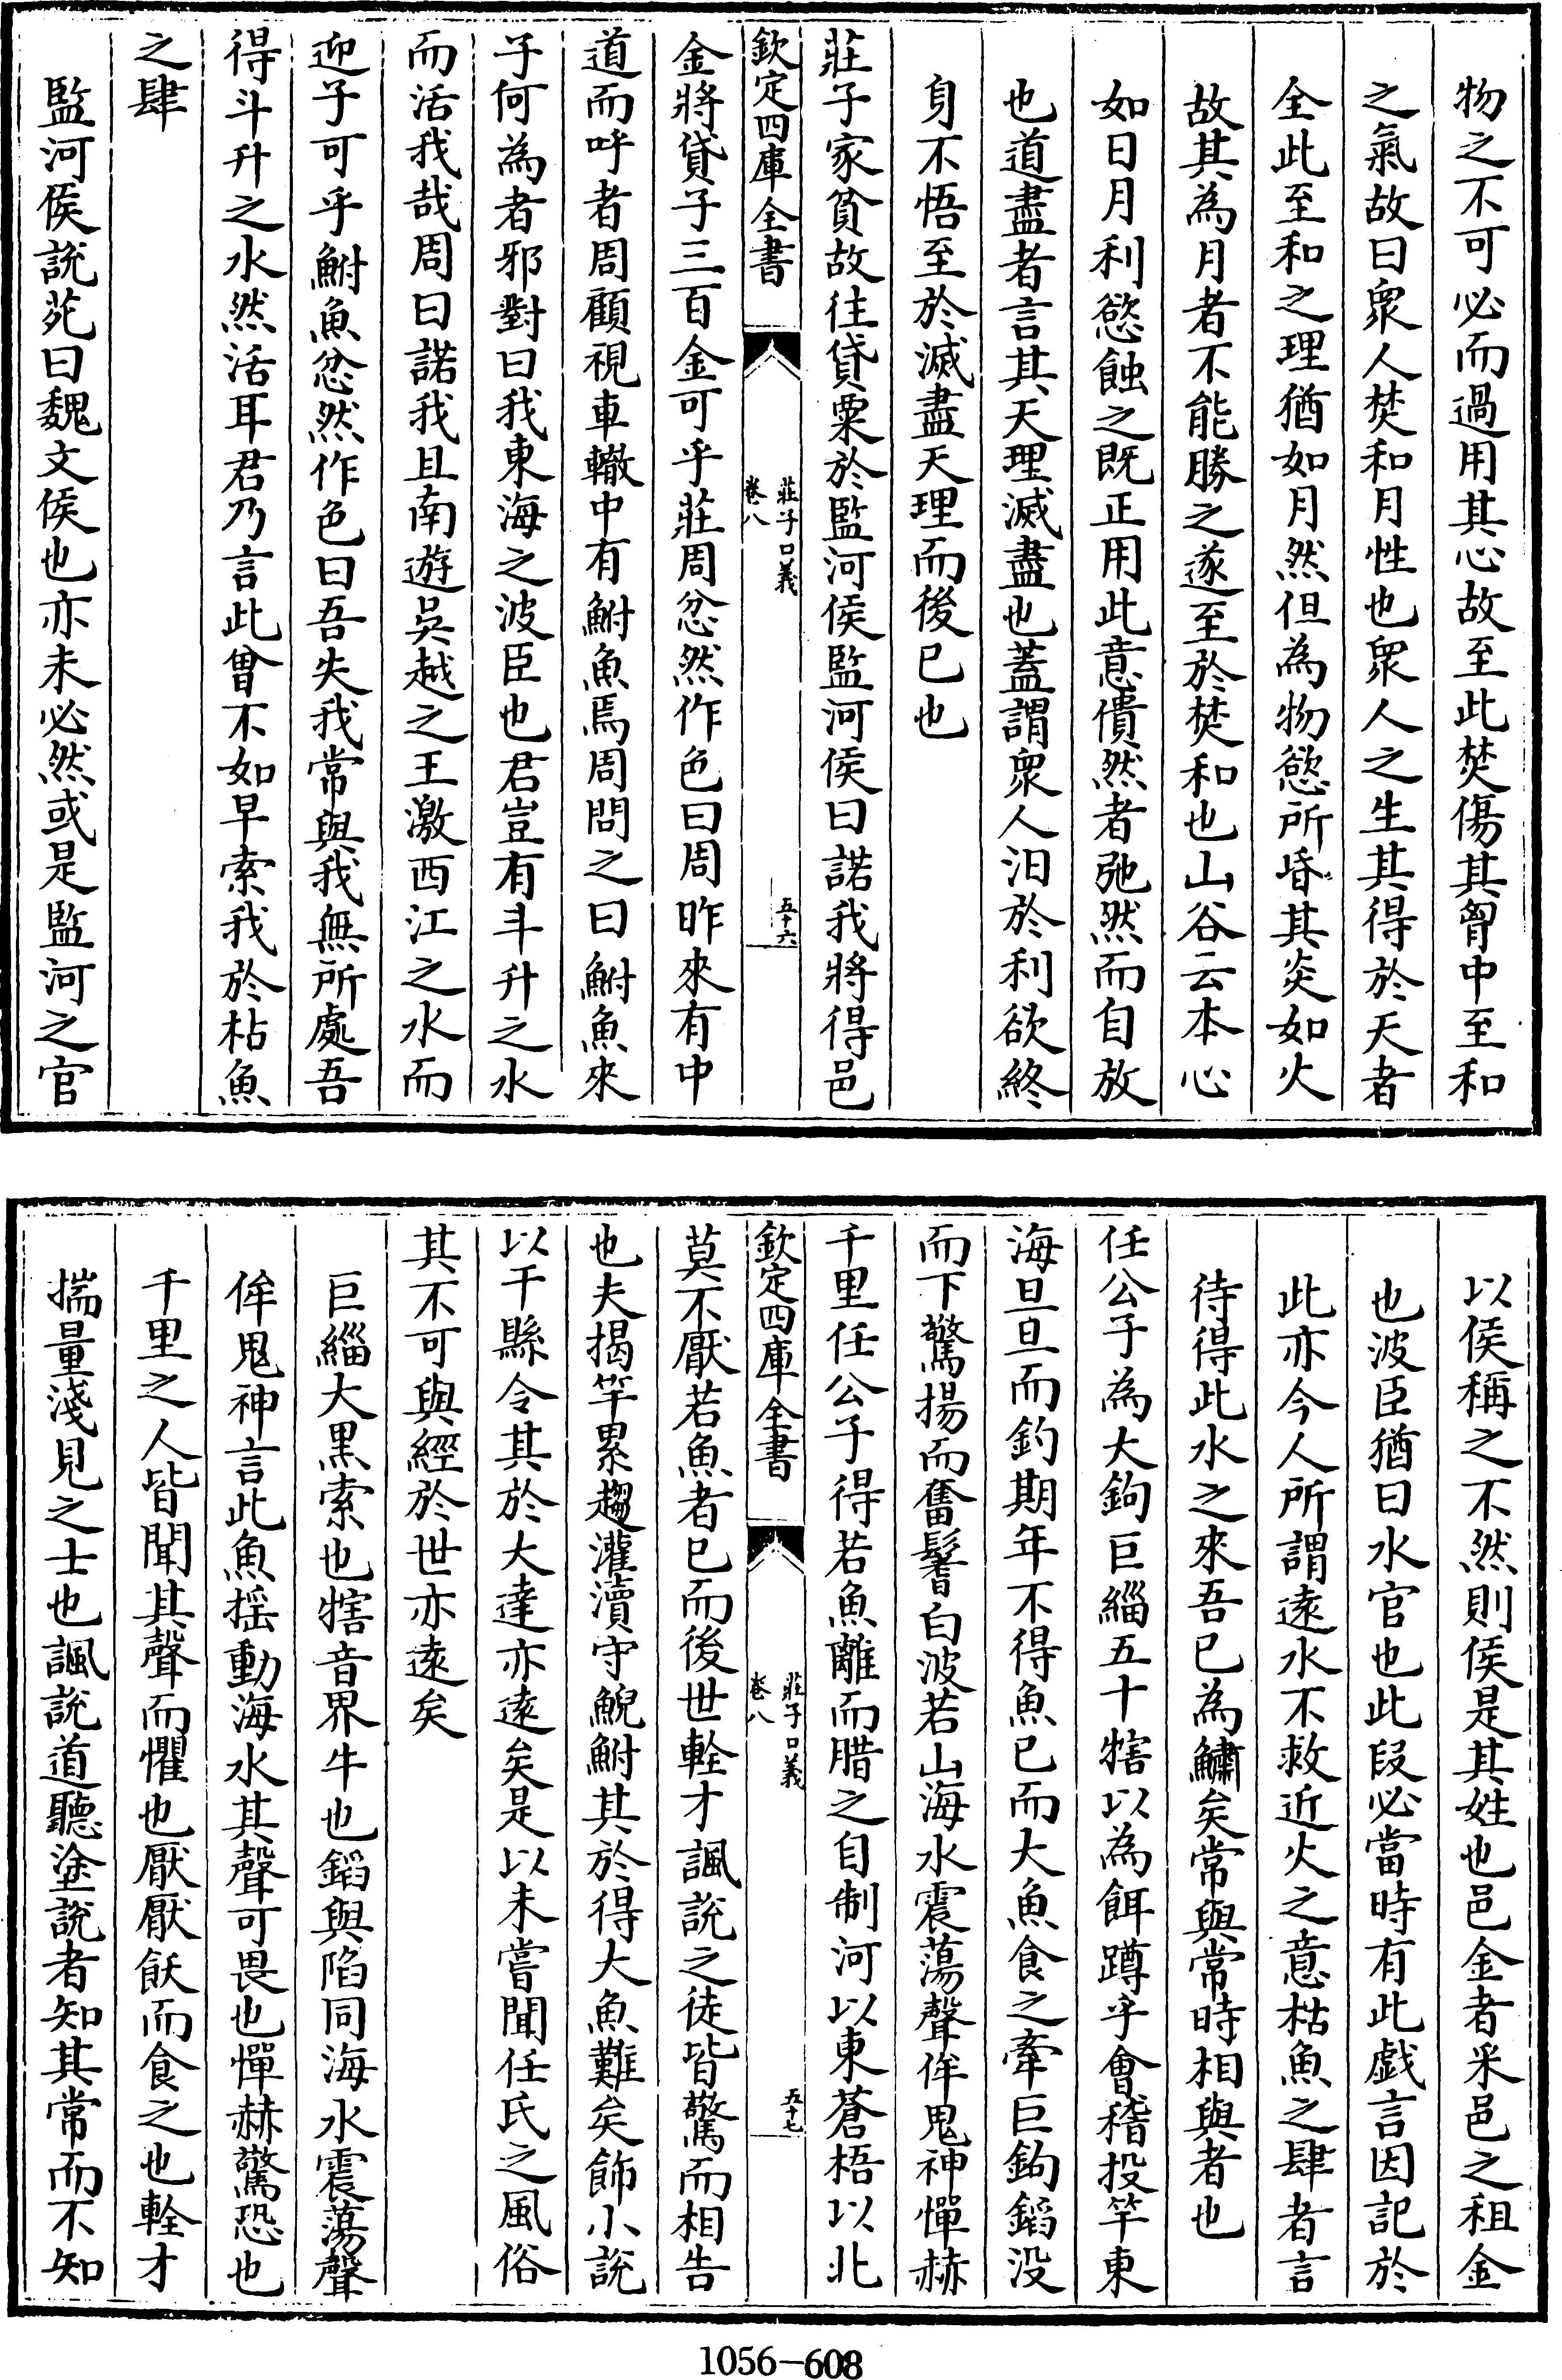 物之不可必而過用其心故至此焚傷其胷中至和
之氣故曰衆人焚和月性也衆人之生其得於天者
全此至和之理猶如月然但為物慾所昏其炎如火
故其為月者不能勝之遂至於焚和也山谷云本心
如日月利慾蝕之既正用此意僓然者弛然而自放
也道盡者言其天理滅盡也蓋謂衆人汩於利欲終
身不悟至於滅盡天理而後已也
莊子家貧故往貸粟於監河侯監河侯曰諾我將得邑
欽定四庫全書
莊子口義
卷八
五十六
金將貸子三百金可乎莊周忿然作色曰周昨來有中
道而呼者周顧視車轍中有鮒魚焉周問之曰鮒魚來
子何為者邪對曰我東海之波臣也君豈有斗升之水
而活我哉周曰諾我且南遊吳越之王激西江之水而
迎子可乎鮒魚忿然作色曰吾失我常與我無所處吾
得斗升之水然活耳君乃言此曾不如早索我於枯魚
之肆
監河侯說苑曰魏文侯也亦未必然或是監河之官
以侯稱之不然則侯是其姓也邑金者采邑之租金
也波臣猶曰水官也此段必當時有此戲言因記於
此亦今人所謂遠水不救近火之意枯魚之肆者言
待得此水之來吾已為鱐矣常與常時相與者也
任公子為大鉤巨緇五十犗以為餌蹲乎會稽投竿東
海旦旦而釣期年不得魚已而大魚食之牽巨鉤錎没
而下驚揚而奮鬐白波若山海水震蕩聲侔鬼神憚赫
千里任公子得若魚離而腊之自制河以東蒼梧以北
欽定四庫全書
莊子口義
卷八
五十七
莫不厭若魚者已而後世輇才諷說之徒皆驚而相告
也夫揭竿累趨灌瀆守鯢鮒其於得大魚難矣飾小說
以干縣令其於大達亦遠矣是以未嘗聞任氏之風俗
其不可與經於世亦遠矣
巨緇大黑索也犗音界牛也錎與陷同海水震蕩聲
侔鬼神言此魚揺動海水其聲可畏也憚赫驚恐也
千里之人皆聞其聲而懼也厭厭飫而食之也輇才
揣量淺見之士也諷說道聽塗說者知其常而不知
1056-608